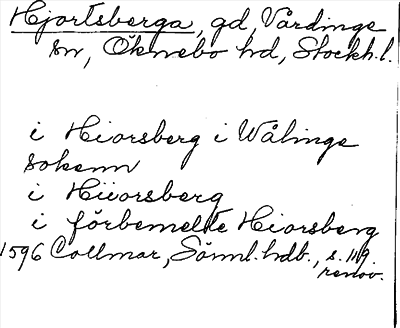 Hjortsberga, gd, Vårdinge
sn, Öknebo hd, Stockh. l.
i Hiorsberg i Wålinge
sokenn
i Hiiorsberg
i förbemelte Hiorsberg
1596 Collmar, Söml. hdb., s. 119.
renov.